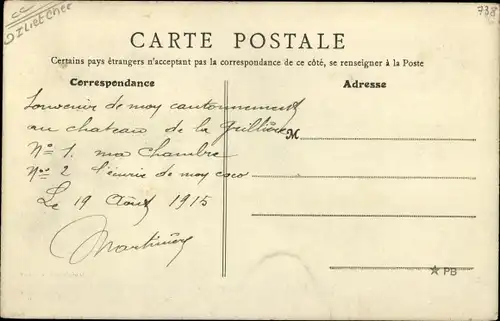 CC
738
CARTE POSTALE
Certains pays étrangers n'acceptant pas la correspondance de ce côté, se renseigner à la Poste
Correspondance
Adresse
Souvenir de moy cantonnement
au chateau de la Grillière
M
Nº 1. ma chambre
Nº 2 l'écurie de moy coco
Le 19 Août 1915
★ PB